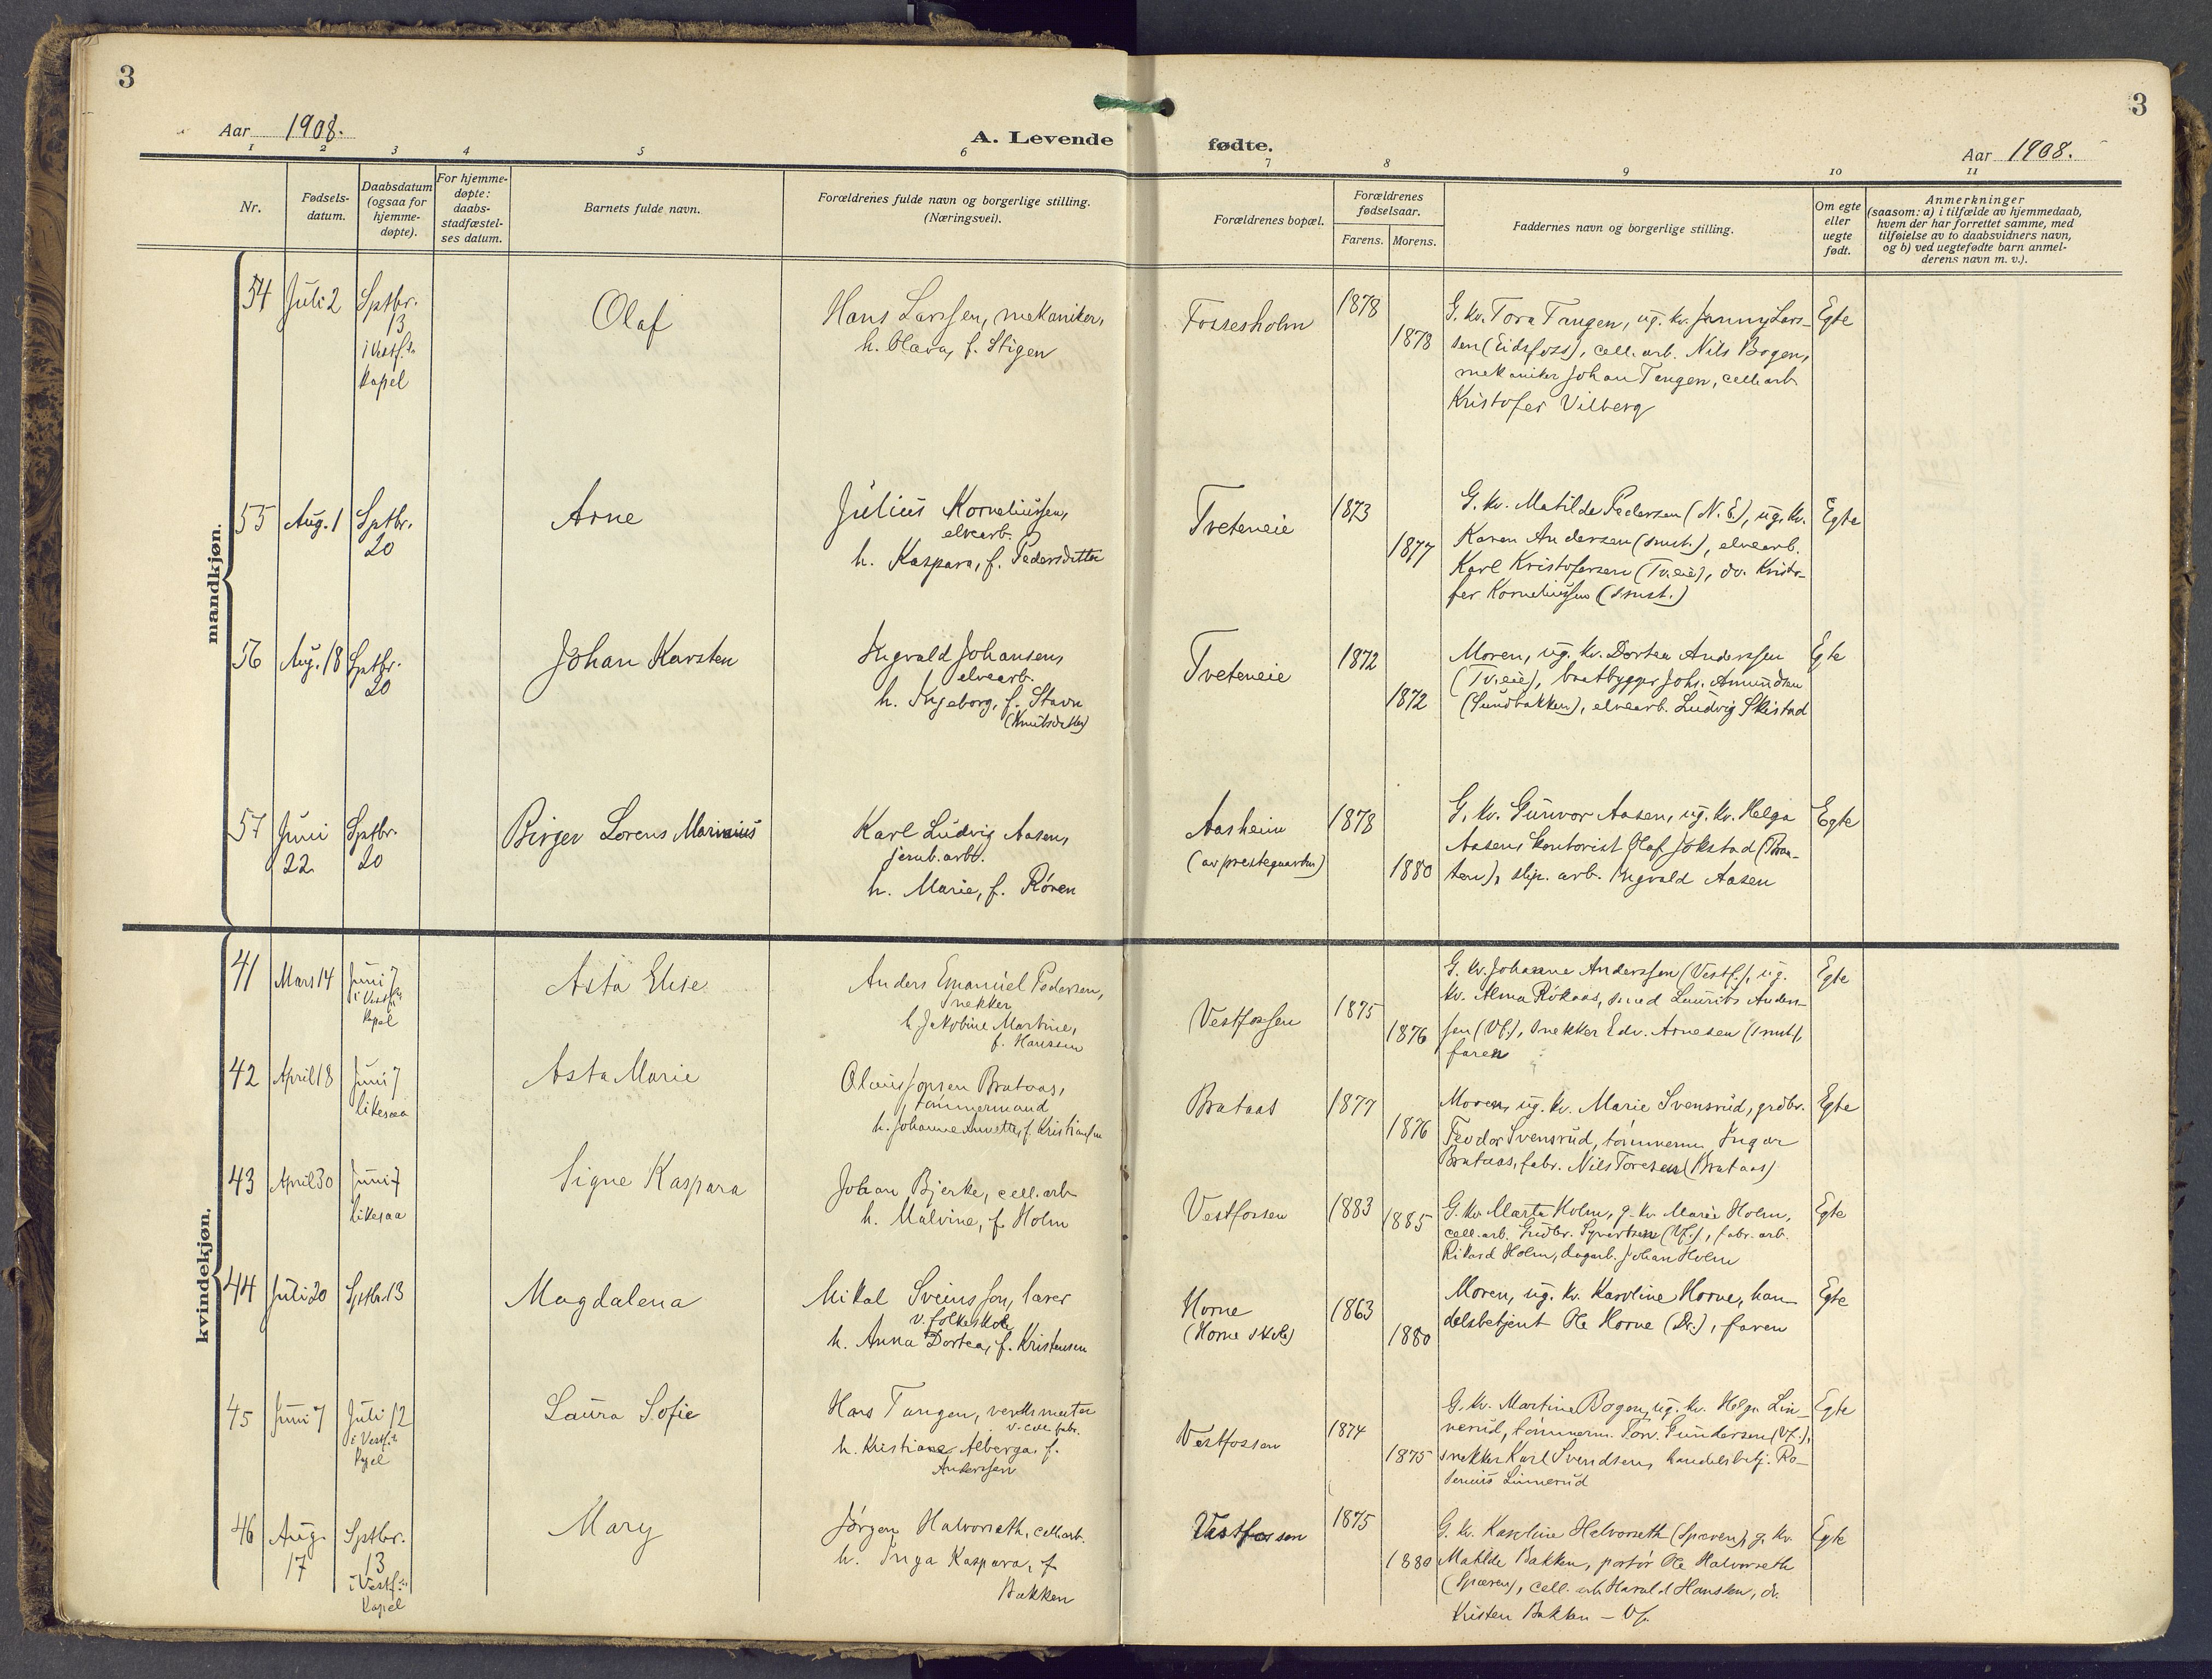 3
3
Aar 1908.
A. Levende
fødte.
Aar 1908.
1 2 3 4 5 6 7 8 9 10 11
Nr.
Fødsels-
datum.
Daabsdatum
(ogsaa for
hjemme-
døpte).
For hjemme-
døpte:
daabs-
stadfæstel-
ses datum.
Barnets fulde navn.
Forældrenes fulde navn og borgerlige stilling.
(Næringsvei).
Forældrenes bopæl.
Forældrenes
fødselsaar.
Farens. Morens.
Faddernes navn og borgerlige stilling.
Om egte
eller
uegte
født.
Anmerkninger
(saasom: a) i tilfælde av hjemmedaab,
hvem der har forrettet samme, med
tilføielse av to daabsvidners navn,
og b) ved uegtefødte barn anmel-
derens navn m. v.).
mandkjøn.
54 Juli 2
Sptbr.
13
i Vestf.
Kapel
Olaf
Hans Larssen, mekaniker,
h. Olava, f. Stigen
Fossesholm
1878
1878
G. kv. Tora Tangen, ug. kv. Jenny Lars-
sen (Eidsfoss), cell. arb. Nils Bogen,
mekaniker Johan Tangen, cell. arb
Kristofer Vilberg
Egte
55 Aug. 1
Sptbr.
20
Arne
Julius Korneliussen,
elvearb.
h. Kaspara, f. Pedersdatter
Tveteneie
1873
1877
G. kv. Matilde Pedersen (N. E.), ug. kv.
Karen Andersen (smst.), elvearb.
Karl Kristofersen (Tv.eie), do. Kristo-
fer Korneliussen (smst.)
Egte
56 Aug. 18
Sptbr.
20
Johan Karsten
Ingvald Johansen,
elvearb.
h. Ingeborg, f. Stavn
(Knutsdatter)
Tveteneie
1872
1872
Moren, ug. kv. Dortea Anderssen
(Tv.eie), baatbygger Johs. Amundsen
(Sundbakken), elvearb. Ludvig Skistad
Egte
57 Juni
22
Sptbr.
20
Birger Lorens Marinius
Karl Ludvig Aasen,
jernb. arb.
h. Marie, f. Røren
Aasheim
(av prestegaarden)
1878
1880
G. kv. Gunvor Aasen, ug. kv. Helga
Aasen, kontorist Olaf Jokstad (Bra-
ten), slip. arb. Ingvald Aasen
Egte
kvindekjøn.
41 Mars 14
Juni 7
i Vestf.
Kapel
Asta Elise
Anders Emanuel Pedersen,
snekker
h. Jakobine Martine,
f. Hanssen
Vestfossen
1875
1876
G. kv. Johanne Anderssen (Vestf.), ug.
kv. Alma Rökaas, smed Laurits Anders-
sen (Vf.), snekker Edv. Arnesen (smst),
faren
Egte
42 April 18
Juni 7
likesaa
Asta Marie
Olaus Jonsen Brataas,
tømmermand
h. Johanne Annette, f. Kristiansen
Brataas
1877
1876
Moren, ug. kv. Marie Svensrud, grdbr.
Teodor Svensrud, tømmerm. Ingar
Brataas, fabr. Nils Toresen (Brataas)
Egte
43 April 30
Juni 7
likesaa
Signe Kaspara
Johan Bjerke, cell. arb
h. Malvine, f. Holm
Vestfossen
1883
1885
G. kv. Marta Holm, g. kv. Marie Holm,
cell. arb. Gudbr. Syvertsen (Vf.), fabr. arb.
Rikard Holm, dagarb. Johan Holm
Egte
44 Juli 20
Sptbr. 13
Magdalena
Mikal Sveinsson, lærer
v. folkeskole
h. Anna Dortea, f. Kristensen
Horne
(Horne skole)
1863
1880
Moren, ug. kv. Karoline Horne, han-
delsbetjent Ole Horne (Dr.), faren
Egte
45 Juni 7
Juli 12
i Vestf.
Kapel
Laura Sofie
Hans Tangen, verksmester
v. cell. fabr.
h. Kristiane Alberga, f.
Anderssen
Vestfossen
1874
1875
G. kv. Martine Bogen, ug. kv. Helga Lin-
nerud, tømmerm. Torv. Gundersen (Vf.),
snekker Karl Svendsen, handelsbetj. Ro-
senius Linnerud
Egte
46 Aug.
17
Sptbr.
13
i Vestf.
Kapel
Mary
Jørgen Halvorseth, cell. arb.
h. Inga Kaspara, f
Bakken
Vestfossen
1875
1880
G. kv. Karoline Halvorseth (Spæren), g. kv.
Matilde Bakken, portør Ole Halvorseth
(Spæren), cell. arb. Harald Hanssen, do.
Kristen Bakken – Vf.
Egte